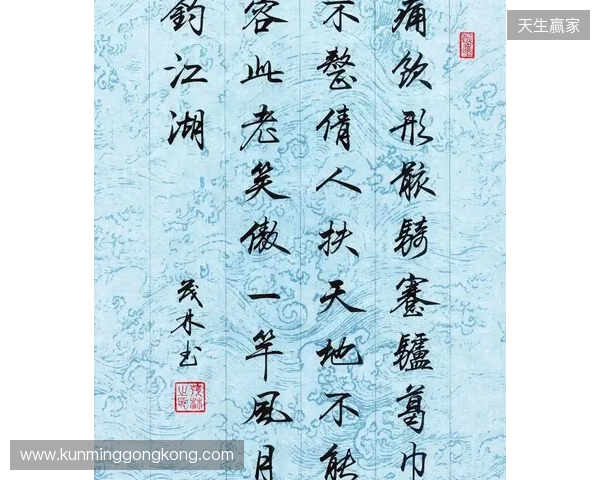 天生赢家
痛飲形骸騎蹇驢葛巾
不整倩人扶天地不能
容此老笑傲一竿風月
釣江湖
茂林书
www.kunminggongkong.com